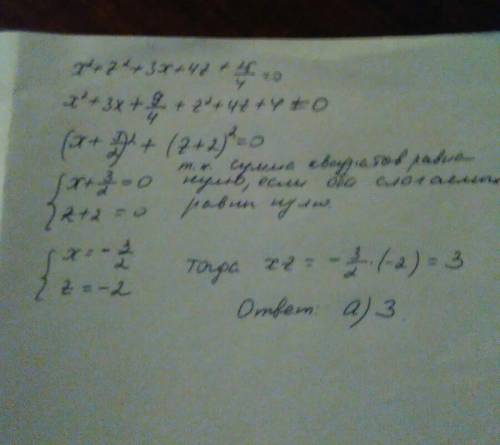 x² + z² + 3x + 4z + 25/4 = 0
x² + 3x + 9/4 + z² + 4z + 4 = 0
(x + 3/2)² + (z + 2)² = 0
т.к. сумма квадратов равна
{ x + 3/2 = 0 нулю, если оба слагаемых
z + 2 = 0 равны нулю.
{ x = -3/2 тогда xz = -3/2 · (-2) = 3
z = -2
Ответ: а) 3